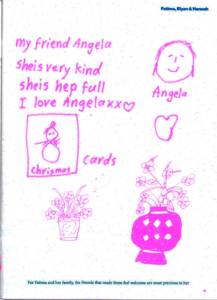 Fatima, Elyan & Hannah
my friend Angela
sheis very kind
sheis hep full
I love Angelaxx
Angela
chrismas
cards
For Fatima and her family, the friends that made them feel welcome are most precious to her